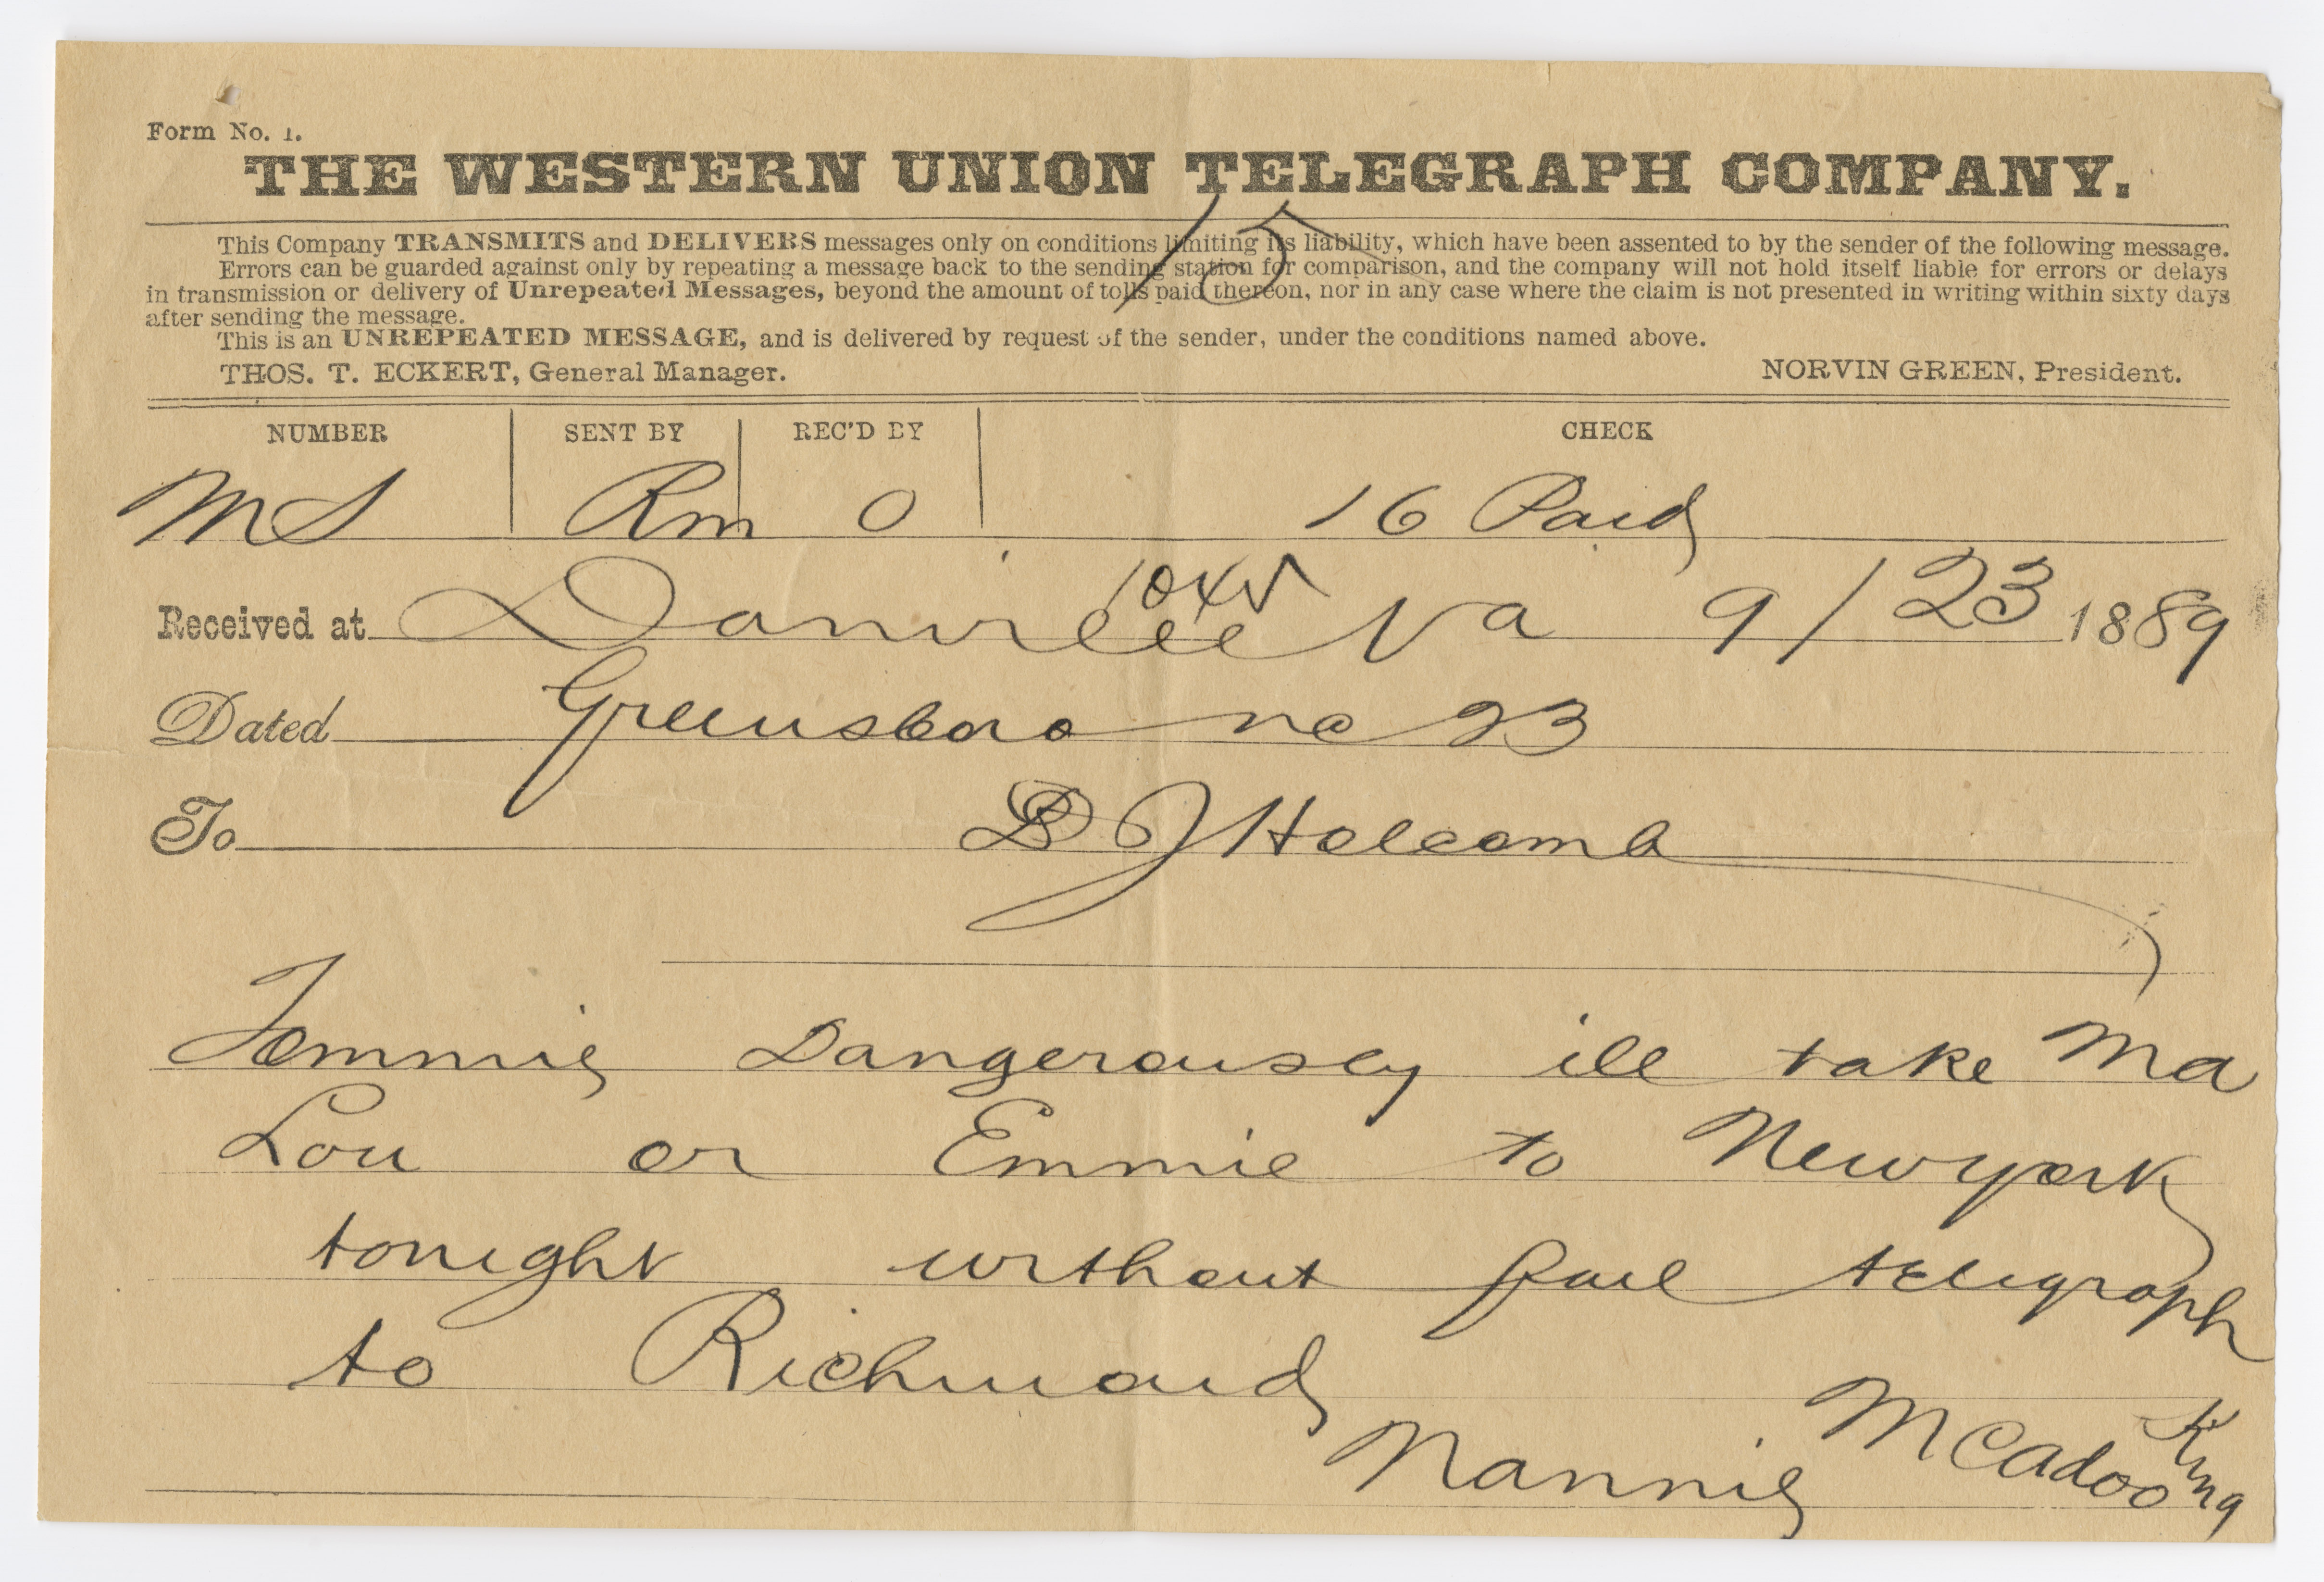 Form No. 1.
THE WESTERN UNION TELEGRAPH COMPANY.
15
This Company TRANSMITS and DELIVERS messages only on conditions limiting its liability, which have been assented to by the sender of the following message.
Errors can be guarded against only by repeating a message back to the sending station for comparison, and the company will not hold itself liable for errors or delays
in transmission or delivery of Unrepeated Messages, beyond the amount of tolls paid thereon, nor in any case where the claim is not presented in writing within sixty days
after sending the message.
This is an UNREPEATED MESSAGE, and is delivered by request of the sender, under the conditions named above.
THOS. T. ECKERT, General Manager. NORVIN GREEN, President.
NUMBER SENT BY REC'D BY CHECK
MS Rm O 16 Paid
1045
Received at Danville Va 9/23 1889
Dated Greensboro nc 23
To D J Holcomb
Tommie Dangerously ill take Ma
Lou or Emmie to Newyork
tonight without fail telegraph
to Richmond
Nannie McAdoo King